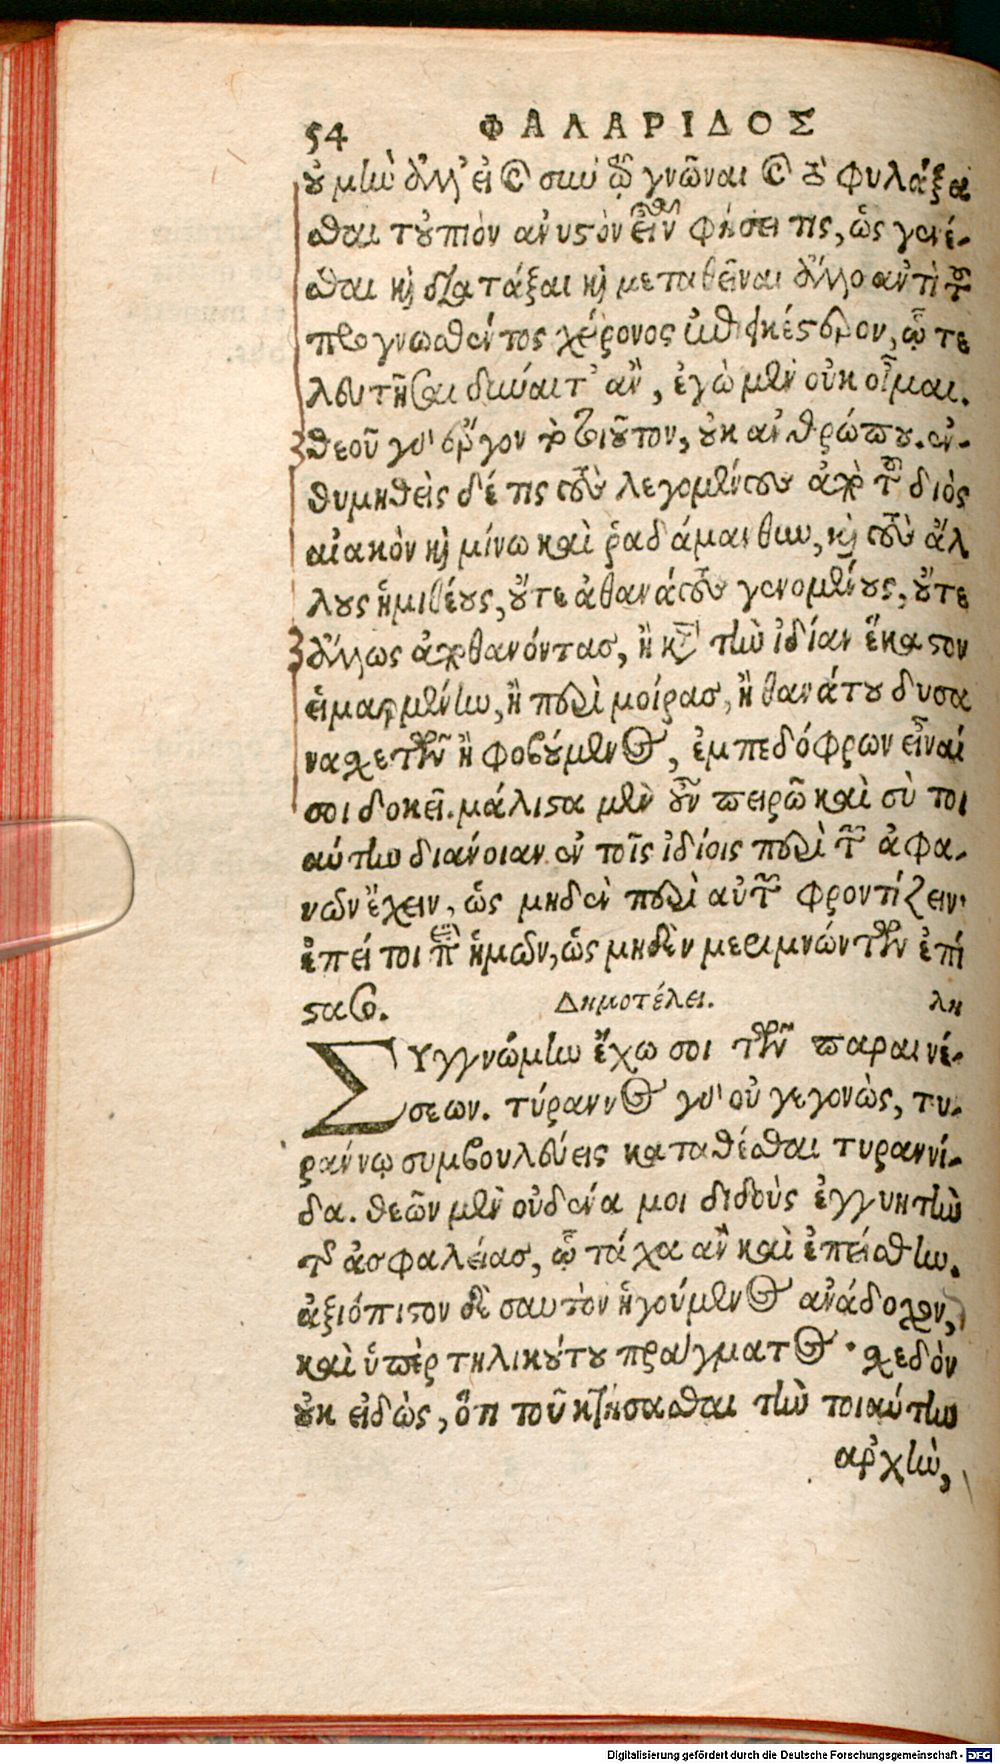 54 ΦΑΛΑΡΙΔΟΣ
οὐ μὴν ἀλλ' εἰ καὶ σὺν τῷ γνῶναι καὶ τὸ φυλάξα
σθαι τοὐπιὸν ἀνυστὸν εἶναι φήσει τις, ὡς γενέ-
σθαι καὶ διατάξαι καὶ μεταθεῖναι ἄλλο ἀντὶ τοῦ
προγνωσθέντος χείρονος ἐπιεικέστερον, ᾧ τε
λευτῆσαι δύναιτ' ἂν, ἐγὼ μὲν οὐκ οἶμαι.
θεοῦ γὰρ ἔργον τὸ τοιοῦτον, οὐκ ἀνθρώπου. ἐν-
θυμηθεὶς δέ τις τοὺς λεγομένους ἀπὸ τοῦ διὸς
αἰακὸν καὶ μίνω καὶ ῥαδάμανθυν, καὶ τοὺς ἄλ
λους ἡμιθέους, οὔτε ἀθανάτους γενομένους, οὔτε
ἄλλως ἀποθανόντας, ἢ κατὰ τὴν ἰδίαν ἕκαστον
εἱμαρμένην, ἢ περὶ μοίρας, ἢ θανάτου δυσα
νασχετῶν ἢ φοβούμενος, ἐμπεδόφρων εἶναί
σοι δοκεῖ. μάλιστα μὲν οὖν πειρῶ καὶ σὺ τοι
αύτην διάνοιαν ἐν τοῖς ἰδίοις περὶ τῶν ἀφα-
νῶν ἔχειν, ὡς μηδὲν περὶ αὐτῶν φροντίζειν·
ἐπεί τοι περὶ ἡμῶν, ὡς μηδὲν μεριμνώντων ἐπί
στασο. Δημοτέλει. λη
ΣΥγγνώμην ἔχω σοι τῶν παραινέ-
σεων. τύραννος γὰρ οὐ γεγονὼς, τυ-
ράννῳ συμβουλεύεις καταθέσθαι τυραννί-
δα. θεῶν μὲν οὐδένα μοι διδοὺς ἐγγυητὴν
τῆς ἀσφαλείας, ᾧ τάχα ἂν καὶ ἐπείσθην.
ἀξιόπιστον δὲ σαυτὸν ἡγούμενος ἀνάδοχον,
καὶ ὑπὲρ τηλικούτου πράγματος· σχεδὸν
οὐκ εἰδὼς, ὅτι τοῦ κτήσασθαι τὴν τοιαύτην
ἀρχὴν,
Digitalisierung gefördert durch die Deutsche Forschungsgemeinschaft - DFG